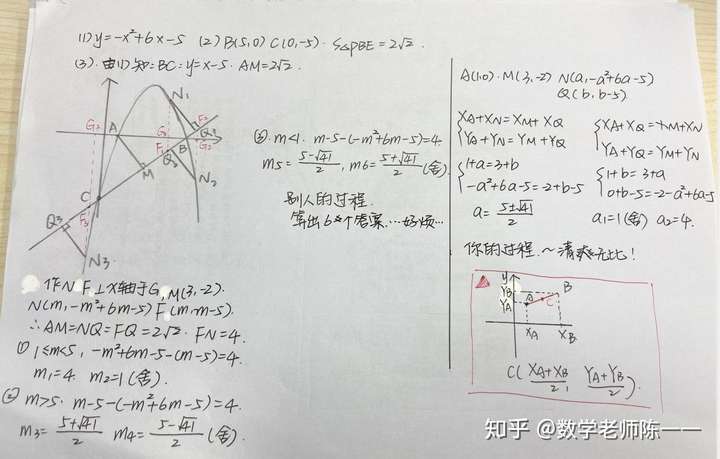 (1) y=-x²+6x-5 (2) B(5,0) C(0,-5). S△PBE=2√2.
(3). 由(1)知:BC:y=x-5. AM=2√2.
N₁
G₂
A
G₁
F₂
F₁
B
Q₁
G₂
Q₂
M
N₂
C
Q₃
F₃
N₃
作NF⊥x轴于G, M(3,-2)
N(m,-m²+6m-5) F(m,m-5).
∴AM=NQ=FQ=2√2. FN=4.
① 1≤m<5, -m²+6m-5-(m-5)=4.
m₁=4. m₂=1(舍).
② m>5. m-5-(-m²+6m-5)=4.
m₃=(5+√41)/2 m₄=(5-√41)/2(舍).
③. m<1. m-5-(-m²+6m-5)=4
m₅=(5-√41)/2, m₆=(5+√41)/2(舍)
别人的过程.
算出6个答案…好烦…
A(1,0). M(3,-2) N(a,-a²+6a-5)
Q(b,b-5).
{XA+XN=XM+XQ
YA+YN=YM+YQ
{1+a=3+b
-a²+6a-5=-2+b-5
a=(5±√41)/2
{XA+XQ=XM+XN
YA+YQ=YM+YN
{1+b=3+a
0+b-5=-2-a²+6a-5
a₁=1(舍) a₂=4.
你的过程.~清爽无比!
y
YB
YA
A
C
B
XA
XB
C((XA+XB)/2, (YA+YB)/2).
知乎 @数学老师陈一一